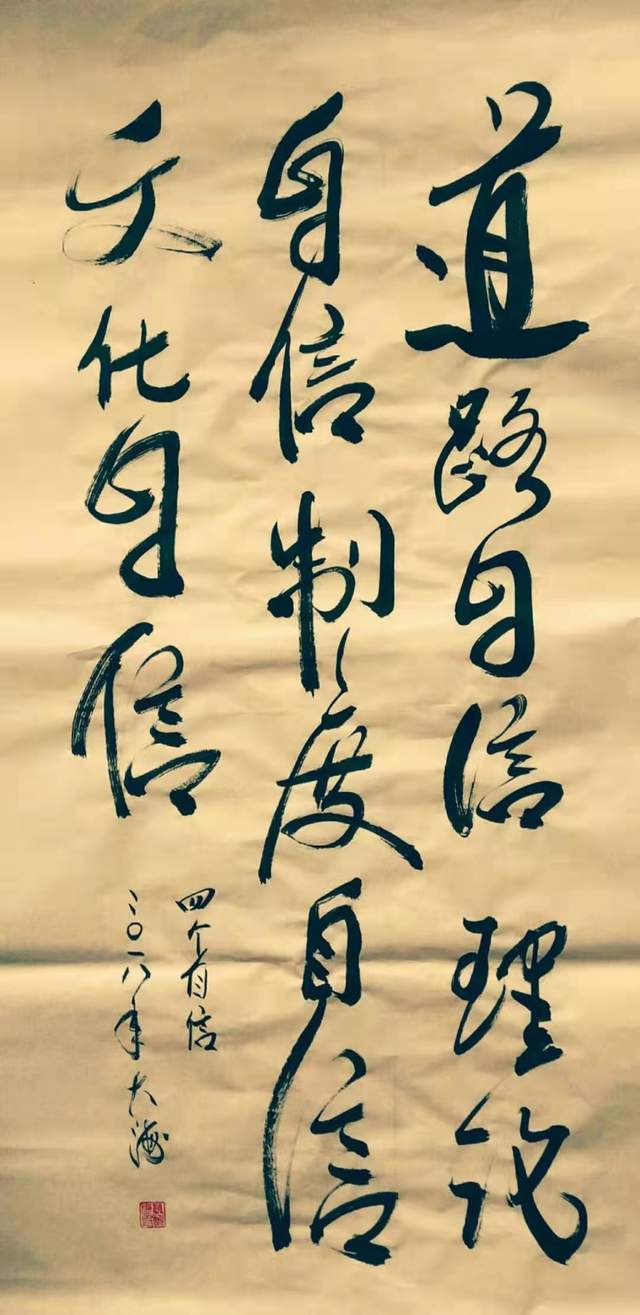 道路自信理论
自信制度自信
文化自信
四个自信
二〇一八年大海